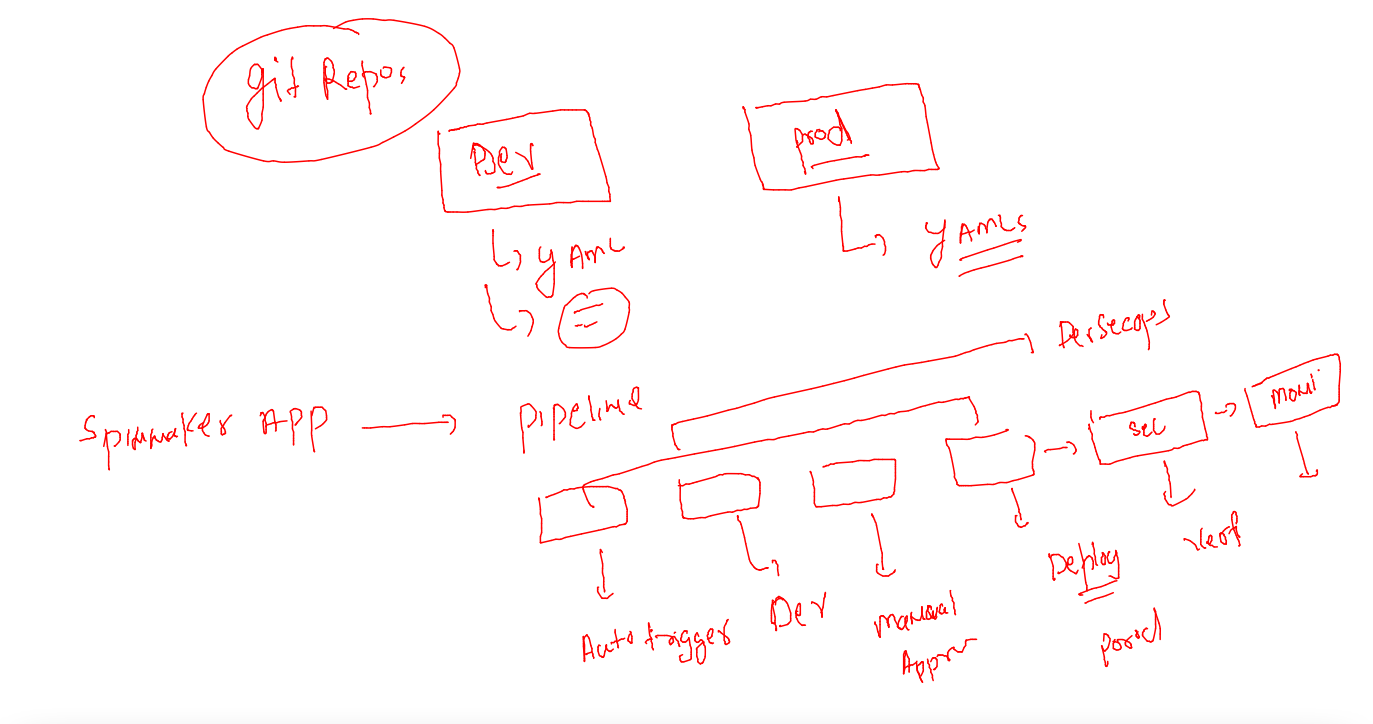 git Repos
Dev
prod
YAML
YAMLs
DevSecops
Spinnaker APP
pipeline
sec
moni
Auto trigger
Dev
manual
Appro
Deploy
prod